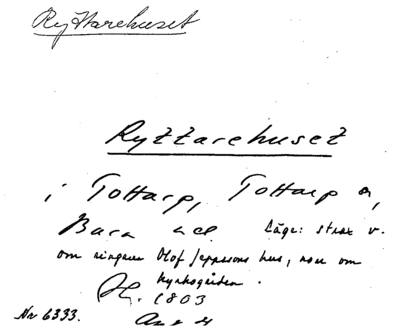 Ryttarehuset
Ryttarehuset
i Tottarp, Tottarp s,
Bara hd Läge: strax v.
om ringaren Olof Jeppssons hus, norr om
kyrkogården.
1803
Nr 6333.